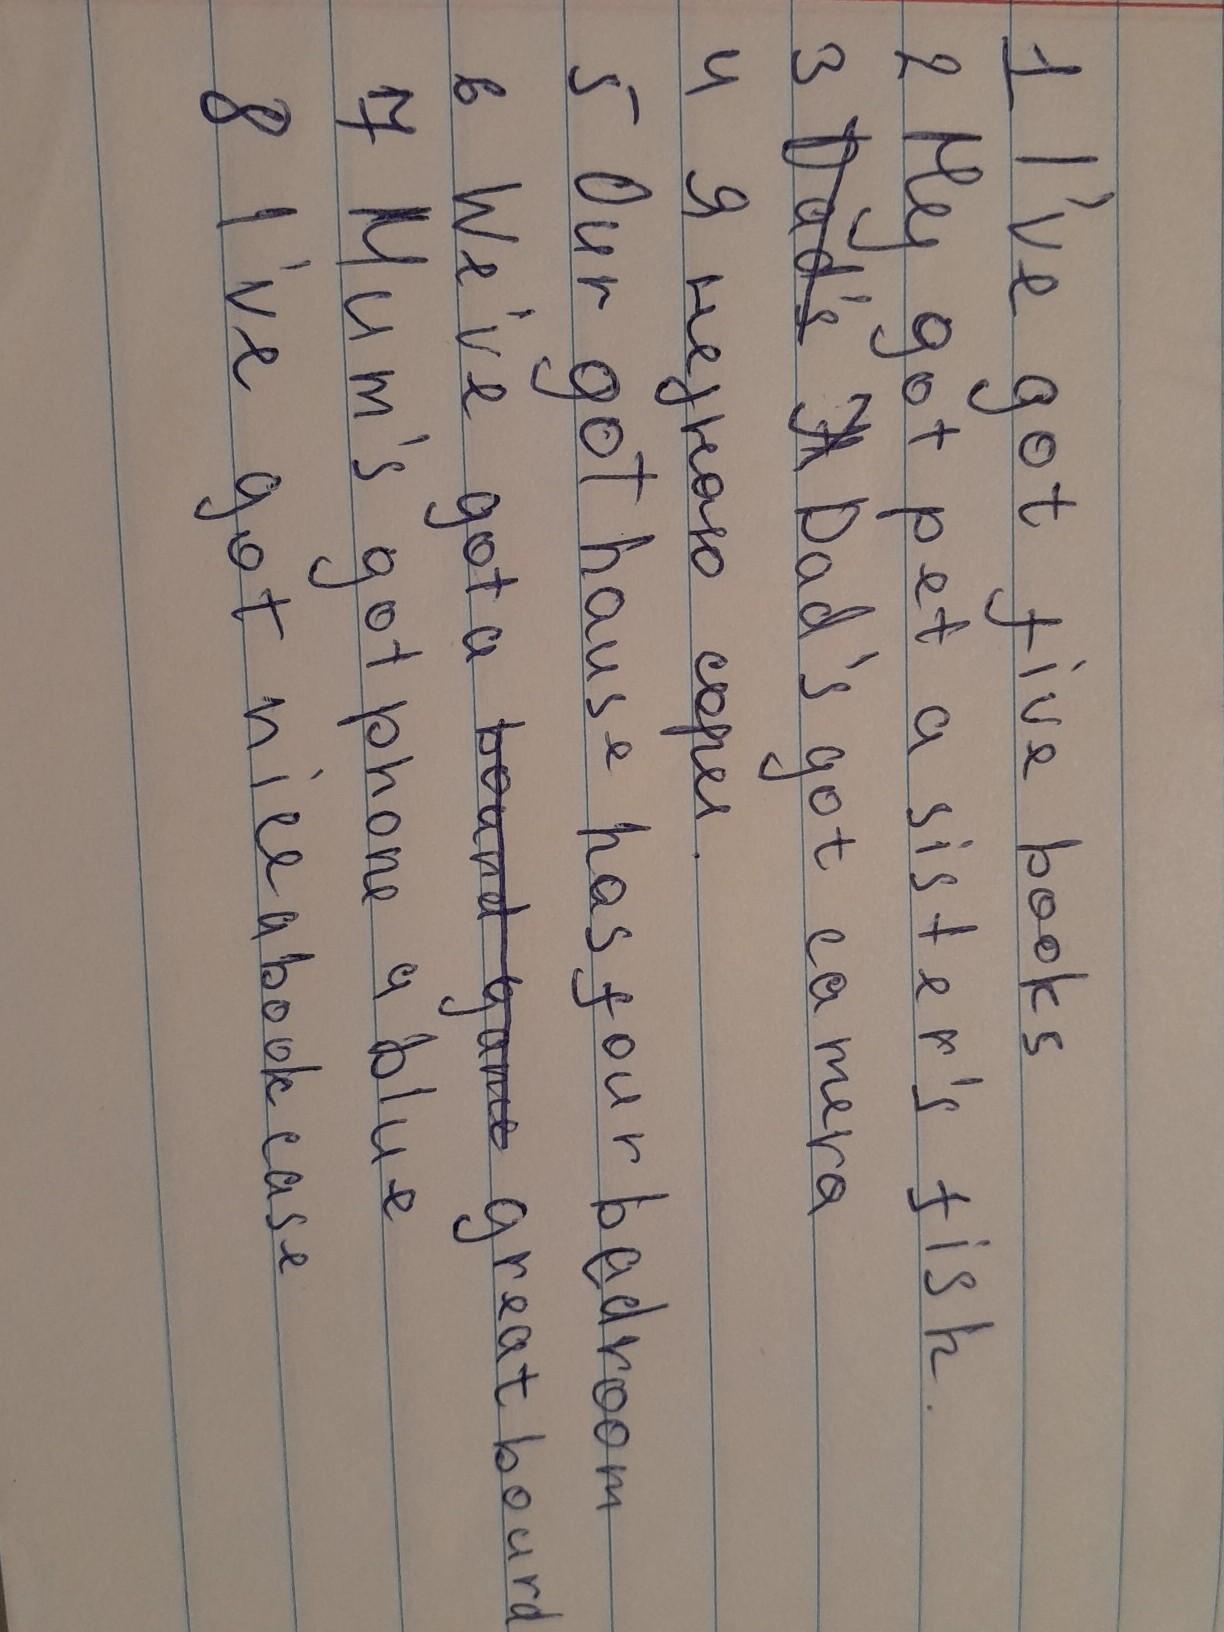 1 I've got five books
2 My got pet a sister's fish.
3 Dad's Dad's got camera
4 Я неузнаю
5 Our got hause has four badroom
6 We've got a bourd game great bourd
7 Mum's got phone a blue
8 I've got nice a book case